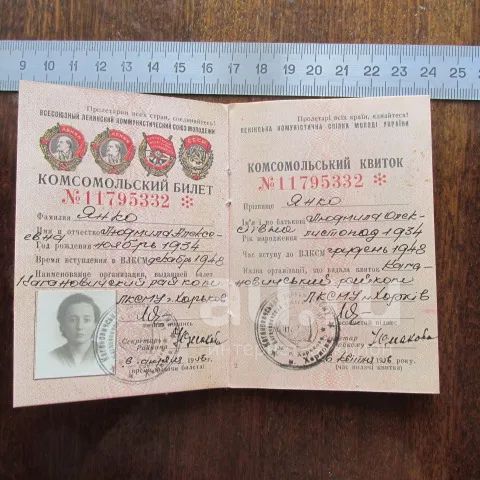 9 10 11 12 13 14 15 16 17 18 19 20 21 22 23 24 25
Пролетарии всех стран, соединяйтесь!
ВСЕСОЮЗНЫЙ ЛЕНИНСКИЙ КОММУНИСТИЧЕСКИЙ СОЮЗ МОЛОДЕЖИ
КОМСОМОЛЬСКИЙ БИЛЕТ
№ 11795332
Янко
Фамилия
Имя и отчество Людмила Алексе-
евна
Год рождения ноябрь 1934
Время вступления в ВЛКСМ декабрь 1948
Наименование организации, выдавшей билет
Кагановичский райком
ЛКСМУ г. Харьков
Секретарь
Райкома
1956 г.
(время выдачи билета)
Пролетарі всіх країн, єднайтеся!
ЛЕНІНСЬКА КОМУНІСТИЧНА СПІЛКА МОЛОДІ УКРАЇНИ
КОМСОМОЛЬСЬКИЙ КВИТОК
№ 11795332
Янко
Прізвище
Ім'я і по батькові Людмила Олек-
Рік народження листопад 1934
Час вступу до ВЛКСМ грудень 1948
Назва організації, що видала квиток Кага-
новичський райком
ЛКСМУ м. Харків
1956 року.
(час видачі квитка)